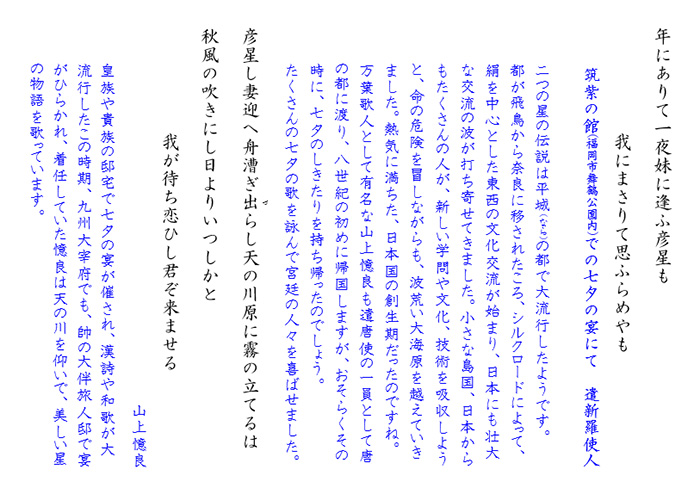 年にありて一夜妹に逢ふ彦星も
我にまさりて思ふらめやも
筑紫の館(福岡市舞鶴公園内)での七夕の宴にて　遣新羅使人
二つの星の伝説は平城(なら)の都で大流行したようです。
都が飛鳥から奈良に移されたころ、シルクロードによって、
絹を中心とした東西の文化交流が始まり、日本にも壮大
な交流の波が打ち寄せてきました。小さな島国、日本から
もたくさんの人が、新しい学問や文化、技術を吸収しよう
と、命の危険を冒しながらも、波荒い大海原を越えていき
ました。熱気に満ちた、日本国の創生期だったのですね。
万葉歌人として有名な山上憶良も遣唐使の一員として唐
の都に渡り、八世紀の初めに帰国しますが、おそらくその
時に、七夕のしきたりを持ち帰ったのでしょう。
たくさんの七夕の歌を詠んで宮廷の人々を喜ばせました。
彦星し妻迎へ舟漕ぎ出(で)らし天の川原に霧の立てるは
秋風の吹きにし日よりいつしかと
我が待ち恋ひし君ぞ来ませる
山上憶良
皇族や貴族の邸宅で七夕の宴が催され、漢詩や和歌が大
流行したこの時期、九州大宰府でも、帥の大伴旅人邸で宴
がひらかれ、着任していた憶良は天の川を仰いで、美しい星
の物語を歌っています。